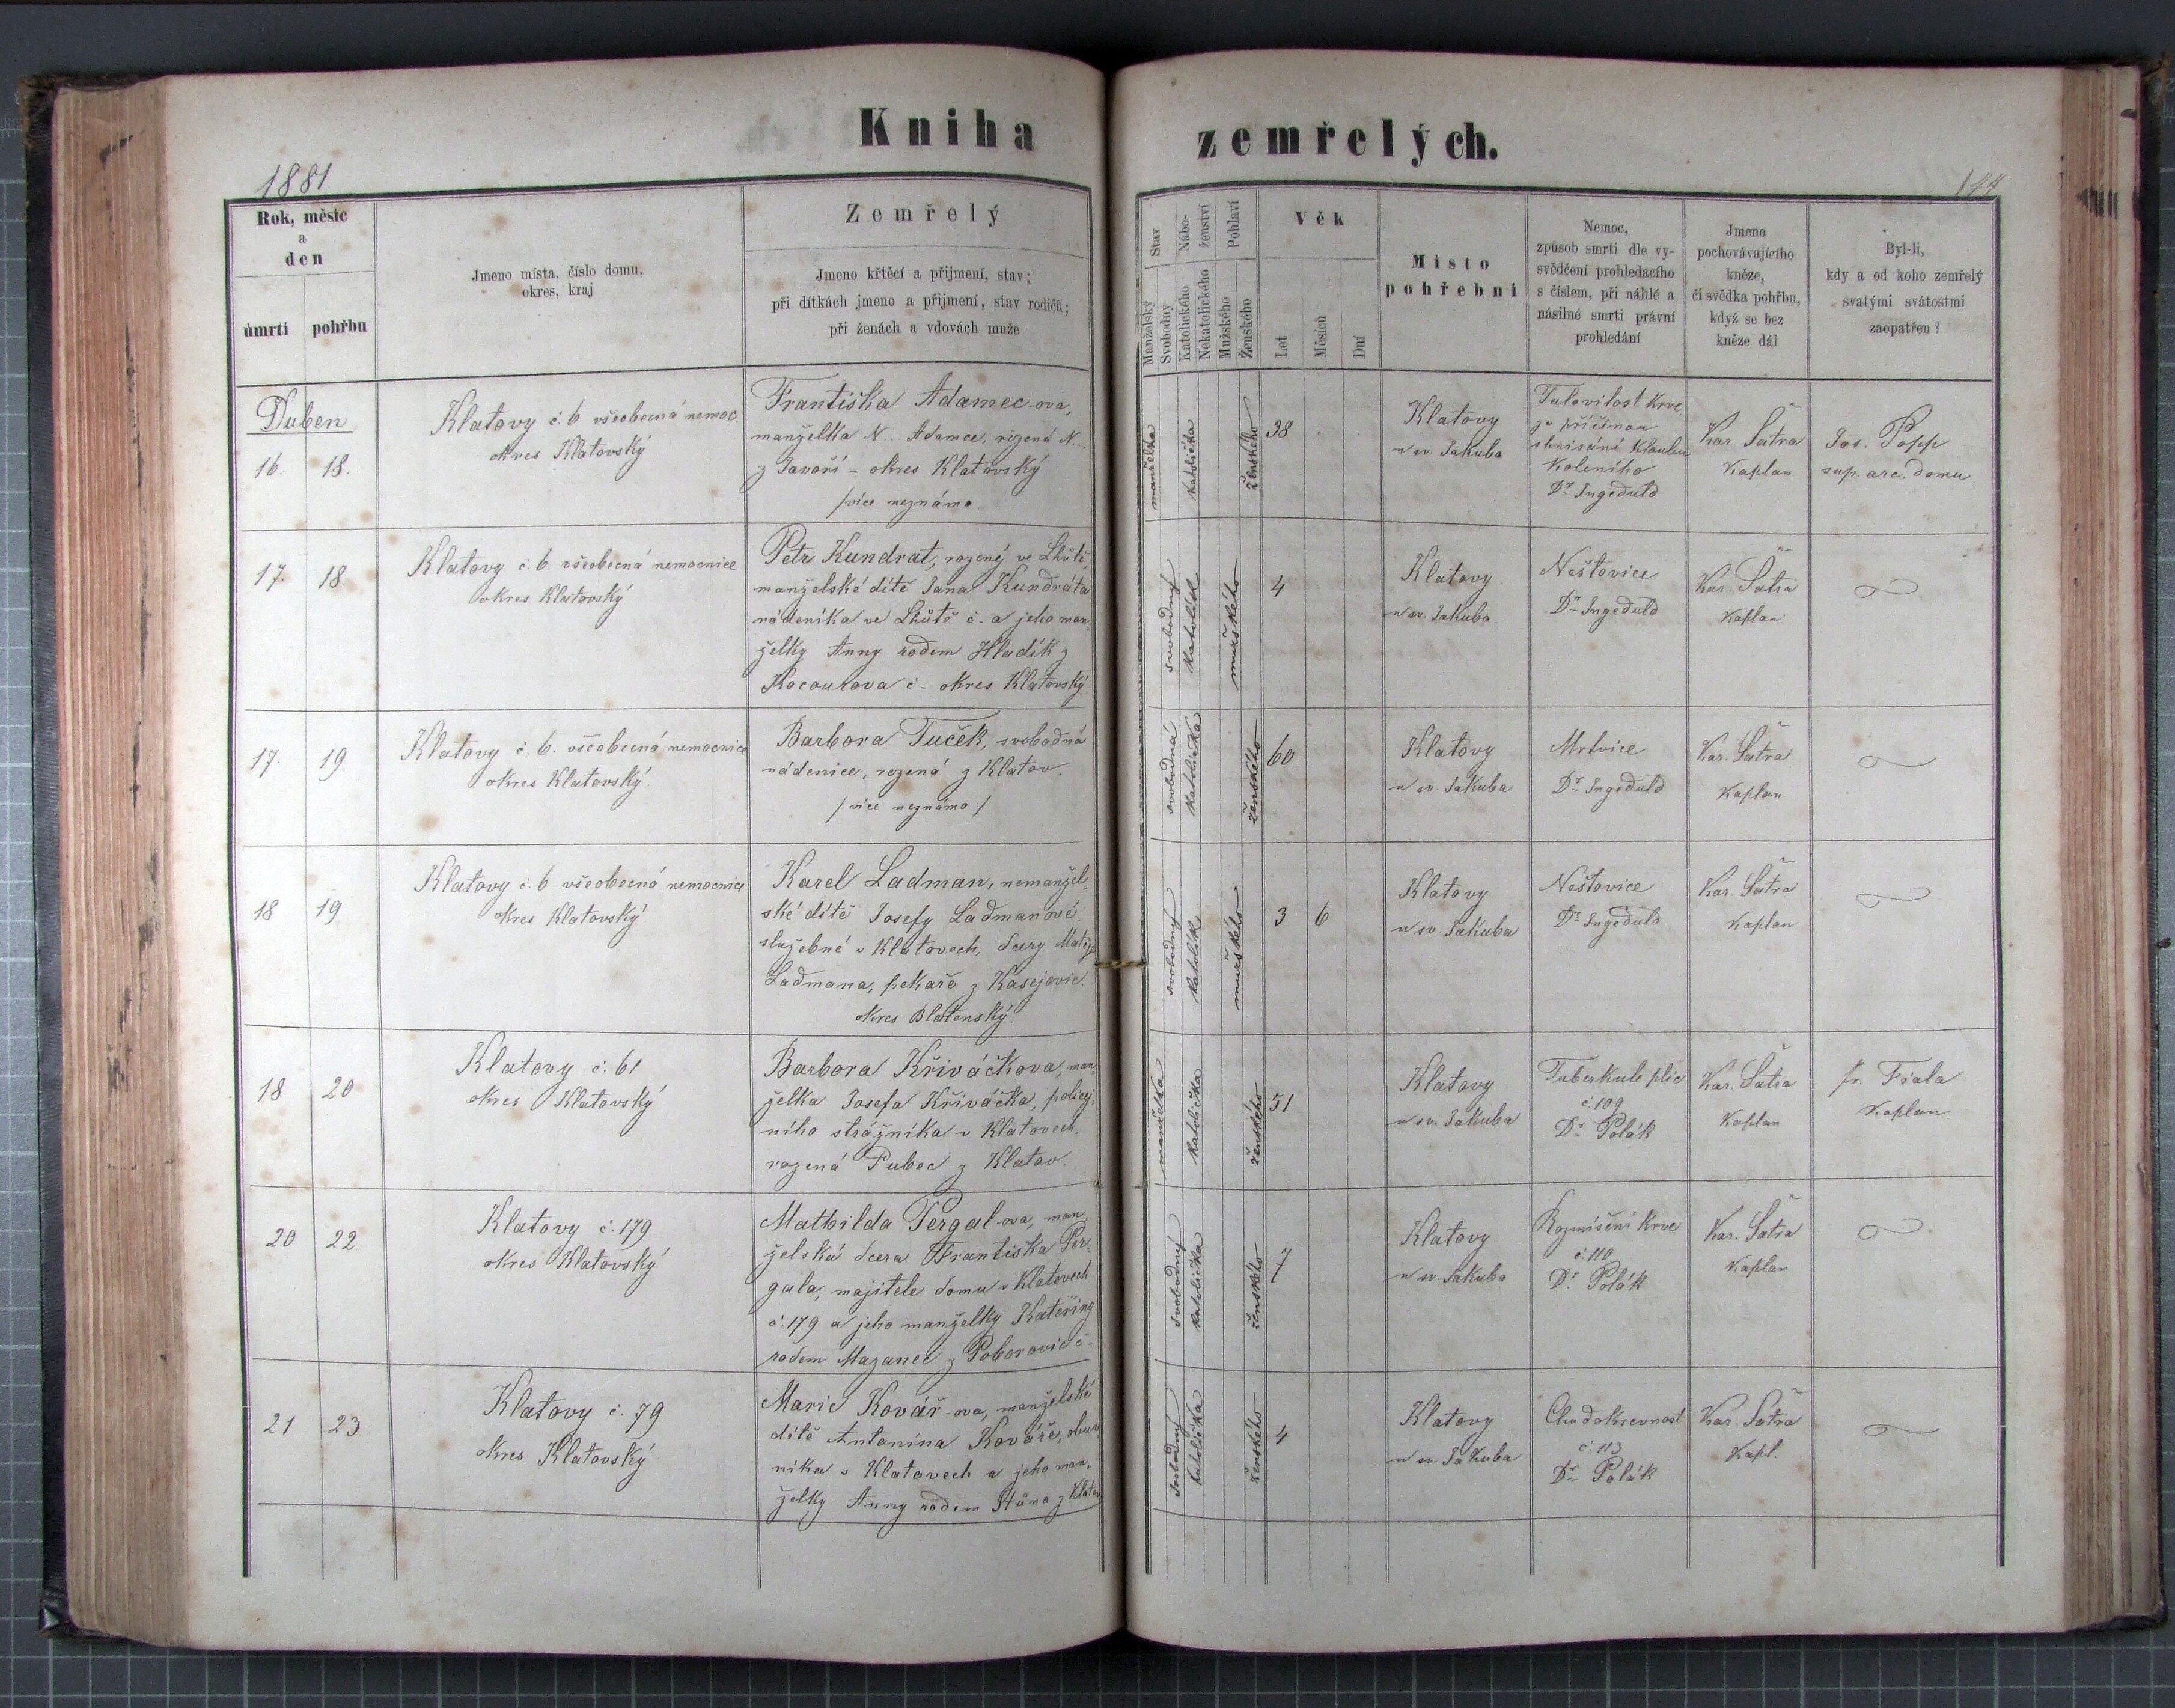 Kniha zemřelých.
1881.
144
Rok, měsíc
a
den
úmrtí
pohřbu
Jmeno místa, číslo domu,
okres, kraj
Zemřelý
Jmeno křtěcí a přijmení, stav;
při dítkách jmeno a přijmení, stav rodičů;
při ženách a vdovách muže
Stav
Manželský
Svobodný
Nábo-
ženství
Katolického
Nekatolického
Pohlaví
Mužského
Ženského
Věk
Let
Měsíců
Dní
Místo
pohřební
Nemoc,
způsob smrti dle vy-
svědčení prohledacího
s číslem, při náhlé a
násilné smrti právní
prohledání
Jmeno
pochovávajícího
kněze,
či svědka pohřbu,
když se bez
kněze dál
Byl-li,
kdy a od koho zemřelý
svatými svátostmi
zaopatřen?
Duben
16. 18.
Klatovy č. 6 všeobecná nemoc.
okres Klatovský
Františka Adamec-ova,
manželka N... Adamce, rozená N...
z Javoří - okres Klatovský
/více neznámo
manželka
katolička
ženského
38
Klatovy
u sv. Jakuba
krve,
za příčinou
kloubu
koleního
Dr. Ingeduld
Kar. Šatra
Kaplan
Jos. Popp
sup. arc. domu
17. 18.
Klatovy č. 6 všeobecná nemocnice
okres Klatovský
Petr Kundrat, rozený ve Lhůtě,
manželské dítě Jana Kundráta
nádeníka ve Lhůtě č - a jeho man-
želky Anny rodem Hladík z
Kocourova č - okres Klatovský
svobodný
katolík
mužského
4
Klatovy
u sv. Jakuba
Neštovice
Dr. Ingeduld
Kar. Šatra
Kaplan
17. 19
Klatovy č. 6. všeobecná nemocnice
okres Klatovský.
Barbora Tuček, svobodná
nádenice, rozená z Klatov.
/více neznámo/
svobodná
katolička
ženského
60
Klatovy
u sv. Jakuba
Mrtvice
Dr. Ingeduld
Kar. Šatra
Kaplan
18 19
Klatovy č. 6 všeobecná nemocnice
okres Klatovský.
Karel Ladman, nemanžel-
ské dítě Josefy Ladmanové,
služebné v Klatovech, dcery Matěje
Ladmana, pekaře z Kasejovic
okres Blatenský.
svobodný
katolík
mužského
3 6
Klatovy
u sv. Jakuba
Neštovice
Dr. Ingeduld
Kar. Šatra
Kaplan
18 20
Klatovy č. 61
okres Klatovský
Barbora Křiváčkova, man-
želka Josefa Křiváčka, policej-
ního strážníka v Klatovech,
rozená Pubec z Klatov.
manželka
katolička
ženského
51
Klatovy
u sv. Jakuba
Tuberkule plic
č. 109
Dr. Polák
Kar. Šatra
Kaplan
Fr. Fiala
Kaplan
20 22.
Klatovy č. 179
okres Klatovský
Mathilda Pergal-ova, man-
želská dcera Františka Per-
gala, majitele domu v Klatovech
č. 179 a jeho manželky Kateřiny
rodem Mazanec z Poborovic č -
svobodný
katolička
ženského
7
Klatovy
u sv. Jakuba
Rozmíšení krve
č. 110
Dr. Polák
Kar. Šatra
Kaplan
21 23
Klatovy č. 79
okres Klatovský
Marie Kovář-ova, manželské
dítě Antonína Kováře, obuv-
níka v Klatovech a jeho man-
želky Anny rodem Stůna z Klatov
svobodný
katolička
ženského
4
Klatovy
u sv. Jakuba
Chudokrevnost
č. 113
Dr. Polák
Kar. Šatra
Kapl.